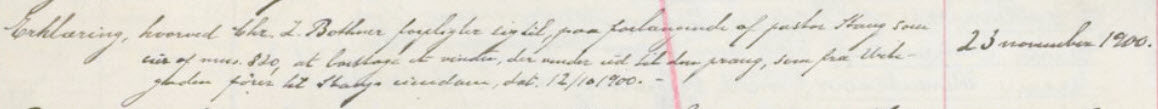 Erklæring, hvorved Chr. L. Bothner forpligter sig til, paa forlangende af pastor Haug som 23 november 1900.
eier af mno. 820, at borttage et vindu, der vender ud til den prang, som fra Uete-
gaden fører til Haugs eiendom, dat. 12/10 1900. -